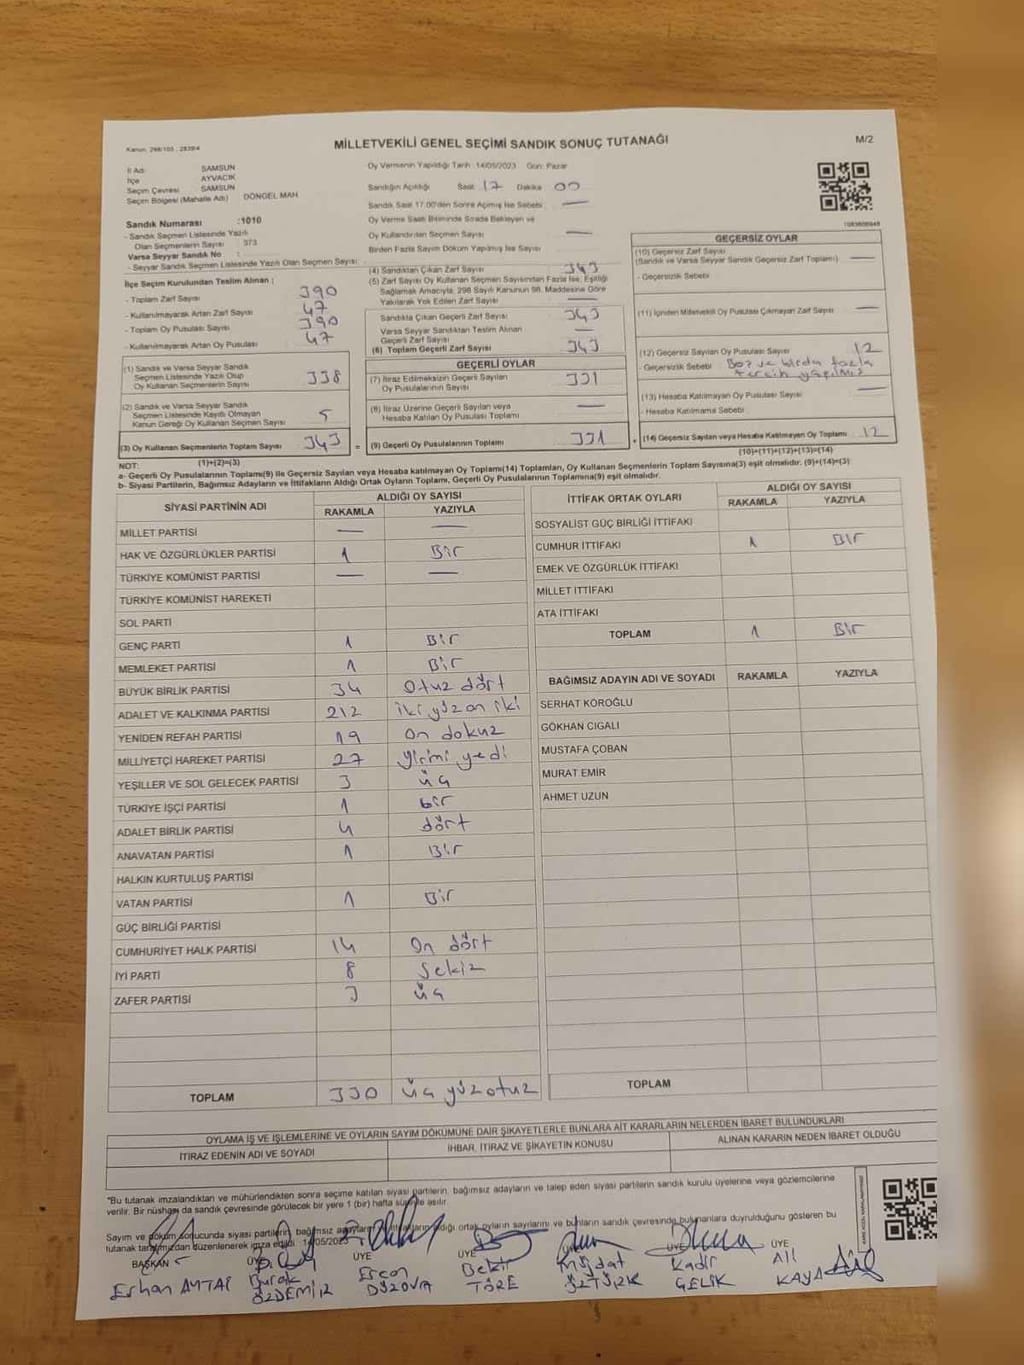 Kanun: 298/105 ; 2839/4
MİLLETVEKİLİ GENEL SEÇİMİ SANDIK SONUÇ TUTANAĞI
M/2
İl Adı: SAMSUN
İlçe AYVACIK
Seçim Çevresi SAMSUN
Seçim Bölgesi (Mahalle Adı) DÖNGEL MAH
Sandık Numarası :1010
- Sandık Seçmen Listesinde Yazılı
Olan Seçmenlerin Sayısı : 373
Varsa Seyyar Sandık No :
- Seyyar Sandık Seçmen Listesinde Yazılı Olan Seçmen Sayısı:
Oy Vermenin Yapıldığı Tarih :14/05/2023 Gün: Pazar
Sandığın Açıldığı Saat 17 Dakika 00
Sandık Saat 17.00'den Sonra Açılmış İse Sebebi: —
Oy Verme Saati Bitiminde Sırada Bekleyen ve
Oy Kullandırılan Seçmen Sayısı —
Birden Fazla Sayım Döküm Yapılmış İse Sayısı
İlçe Seçim Kurulundan Teslim Alınan ;
- Toplam Zarf Sayısı 390
- Kullanılmayarak Artan Zarf Sayısı 47
- Toplam Oy Pusulası Sayısı 390
- Kullanılmayarak Artan Oy Pusulası 47
(1) Sandık ve Varsa Seyyar Sandık
Seçmen Listesinde Yazılı Olup
Oy Kullanan Seçmenlerin Sayısı 338
(2) Sandık ve Varsa Seyyar Sandık
Seçmen Listesinde Kayıtlı Olmayan
Kanun Gereği Oy Kullanan Seçmen Sayısı 5
(3) Oy Kullanan Seçmenlerin Toplam Sayısı 343
(1)+(2)=(3)
(4) Sandıktan Çıkan Zarf Sayısı 343
(5) Zarf Sayısı Oy Kullanan Seçmen Sayısından Fazla İse; Eşitliği
Sağlamak Amacıyla, 298 Sayılı Kanunun 98. Maddesine Göre
Yakılarak Yok Edilen Zarf Sayısı —
Sandıkta Çıkan Geçerli Zarf Sayısı 343
Varsa Seyyar Sandıktan Teslim Alınan
Geçerli Zarf Sayısı —
(6) Toplam Geçerli Zarf Sayısı 343
GEÇERLİ OYLAR
(7) İtiraz Edilmeksizin Geçerli Sayılan
Oy Pusulalarının Sayısı 331
(8) İtiraz Üzerine Geçerli Sayılan veya
Hesaba Katılan Oy Pusulası Toplamı —
= (9) Geçerli Oy Pusulalarının Toplamı 331
GEÇERSİZ OYLAR
(10) Geçersiz Zarf Sayısı
(Sandık ve Varsa Seyyar Sandık Geçersiz Zarf Toplamı) —
- Geçersizlik Sebebi
(11) İçinden Milletvekili Oy Pusulası Çıkmayan Zarf Sayısı —
(12) Geçersiz Sayılan Oy Pusulası Sayısı 12
- Geçersizlik Sebebi Boş ve birden fazla
tercih yapılmış
(13) Hesaba Katılmayan Oy Pusulası Sayısı —
- Hesaba Katılmama Sebebi
+ (14) Geçersiz Sayılan veya Hesaba Katılmayan Oy Toplamı 12
(10)+(11)+(12)+(13)=(14)
NOT:
a- Geçerli Oy Pusulalarının Toplamı(9) ile Geçersiz Sayılan veya Hesaba katılmayan Oy Toplamı(14) Toplamları, Oy Kullanan Seçmenlerin Toplam Sayısına(3) eşit olmalıdır. (9)+(14)=(3)
b- Siyasi Partilerin, Bağımsız Adayların ve İttifakların Aldığı Ortak Oyların Toplamı, Geçerli Oy Pusulalarının Toplamına(9) eşit olmalıdır.
SİYASİ PARTİNİN ADI ALDIĞI OY SAYISI
RAKAMLA YAZIYLA
MİLLET PARTİSİ — —
HAK VE ÖZGÜRLÜKLER PARTİSİ 1 Bir
TÜRKİYE KOMÜNİST PARTİSİ — —
TÜRKİYE KOMÜNİST HAREKETİ
SOL PARTİ
GENÇ PARTİ 1 Bir
MEMLEKET PARTİSİ 1 Bir
BÜYÜK BİRLİK PARTİSİ 34 Otuz dört
ADALET VE KALKINMA PARTİSİ 212 iki yüz on iki
YENİDEN REFAH PARTİSİ 19 On dokuz
MİLLİYETÇİ HAREKET PARTİSİ 27 yirmi yedi
YEŞİLLER VE SOL GELECEK PARTİSİ 3 üç
TÜRKİYE İŞÇİ PARTİSİ 1 bir
ADALET BİRLİK PARTİSİ 4 dört
ANAVATAN PARTİSİ 1 Bir
HALKIN KURTULUŞ PARTİSİ
VATAN PARTİSİ 1 Bir
GÜÇ BİRLİĞİ PARTİSİ
CUMHURİYET HALK PARTİSİ 14 On dört
İYİ PARTİ 8 Sekiz
ZAFER PARTİSİ 3 üç
TOPLAM 330 üç yüz otuz
İTTİFAK ORTAK OYLARI ALDIĞI OY SAYISI
RAKAMLA YAZIYLA
SOSYALİST GÜÇ BİRLİĞİ İTTİFAKI
CUMHUR İTTİFAKI 1 Bir
EMEK VE ÖZGÜRLÜK İTTİFAKI
MİLLET İTTİFAKI
ATA İTTİFAKI
TOPLAM 1 Bir
BAĞIMSIZ ADAYIN ADI VE SOYADI RAKAMLA YAZIYLA
SERHAT KÖROĞLU
GÖKHAN CIGALI
MUSTAFA ÇOBAN
MURAT EMİR
AHMET UZUN
TOPLAM
OYLAMA İŞ VE İŞLEMLERİNE VE OYLARIN SAYIM DÖKÜMÜNE DAİR ŞİKAYETLERLE BUNLARA AİT KARARLARIN NELERDEN İBARET BULUNDUKLARI
İTİRAZ EDENİN ADI VE SOYADI İHBAR, İTİRAZ VE ŞİKAYETİN KONUSU ALINAN KARARIN NEDEN İBARET OLDUĞU
*Bu tutanak imzalandıktan ve mühürlendikten sonra seçime katılan siyasi partilerin, bağımsız adayların ve talep eden siyasi partilerin sandık kurulu üyelerine veya gözlemcilerine
verilir. Bir nüshası da sandık çevresinde görülecek bir yere 1 (bir) hafta süreyle asılır.
Sayım ve döküm sonucunda siyasi partilerin, bağımsız adayların, ittifakların aldığı ortak oyların sayılarını ve bunların sandık çevresinde bulunanlara duyrulduğunu gösteren bu
tutanak tarafımızdan düzenlenerek imza edildi. 14/05/2023
BAŞKAN ÜYE ÜYE ÜYE ÜYE ÜYE ÜYE
Erhan AMTAİ Burak ÖZDEMİR Ercan DÜZOVA Bekir TÖRE Müjdat ÖZTÜRK Kadir ÇELİK Ali KAYA